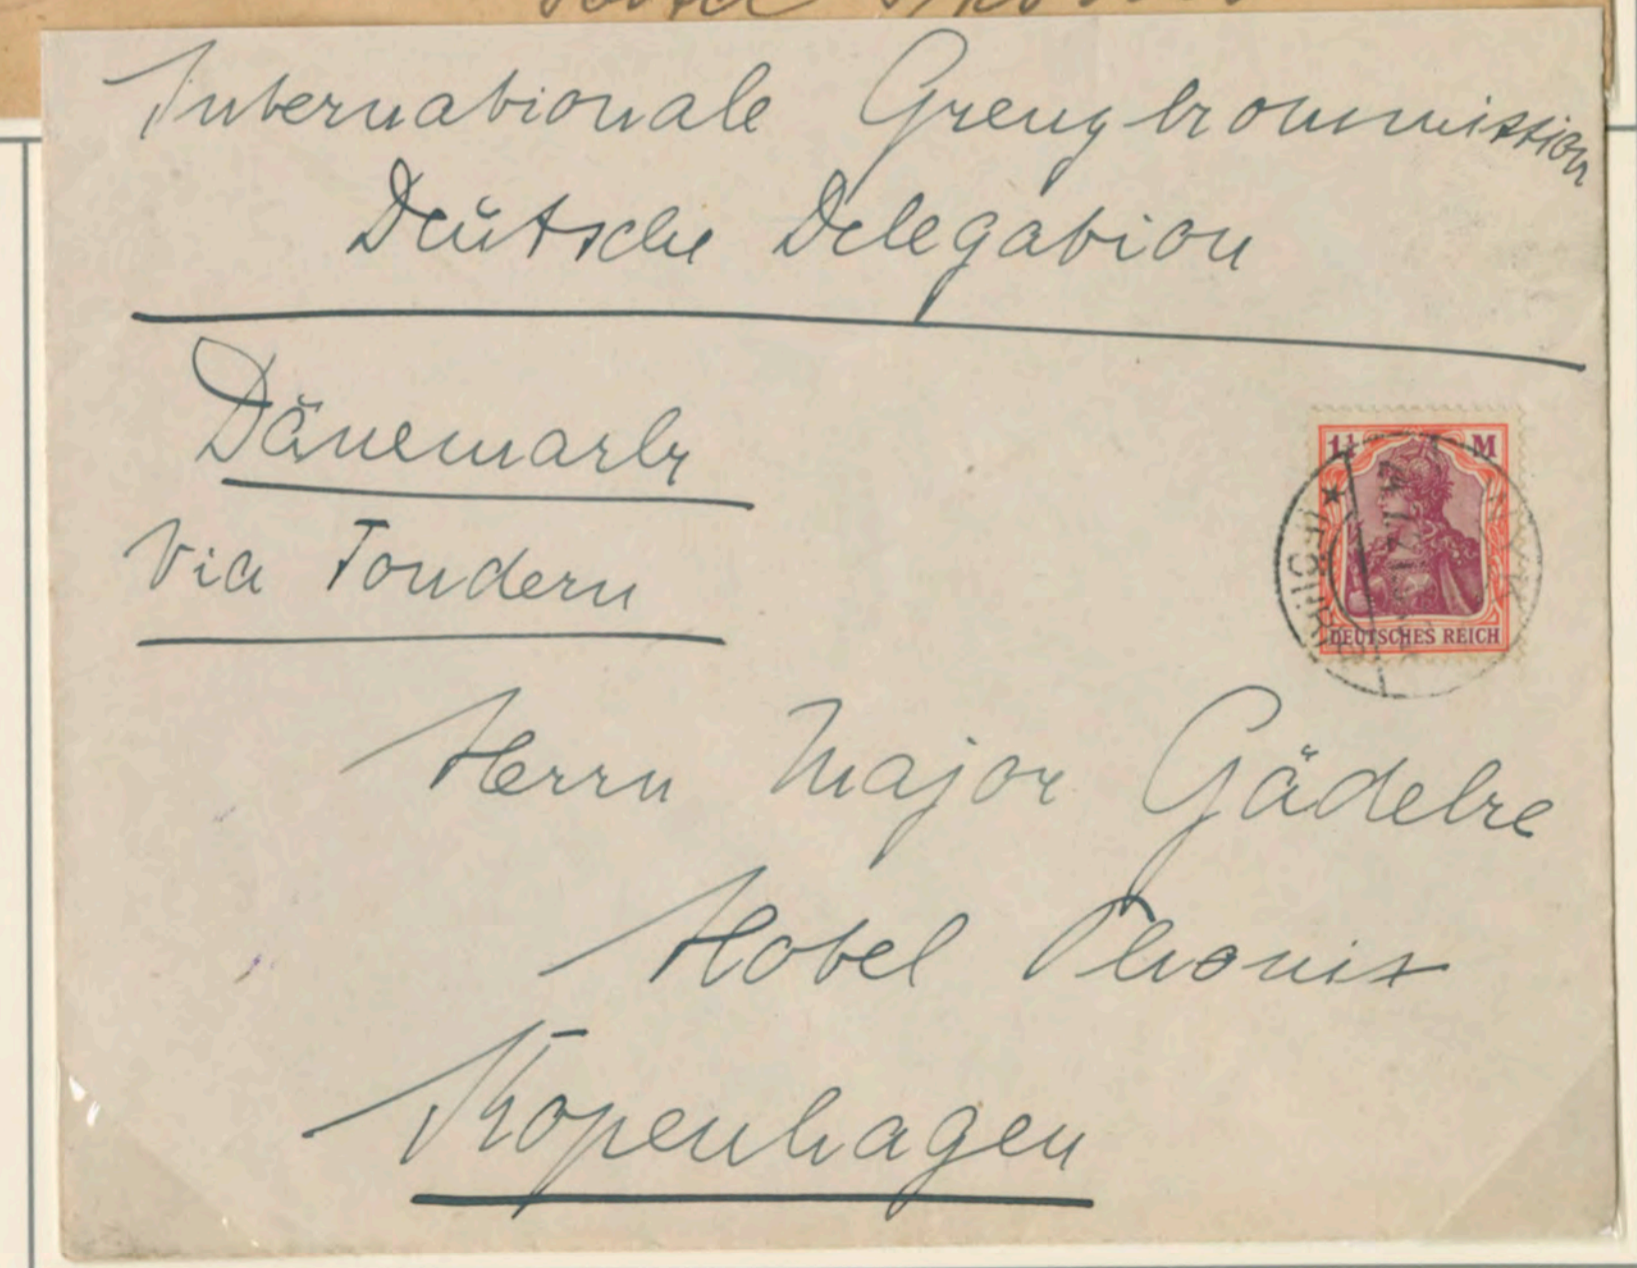 Internationale Grenzkommission
Deutsche Delegation
Dänemark
Via Tondern
1¼ M
DEUTSCHES REICH
Herrn Major Gädeke
Hotel Phonix
Kopenhagen